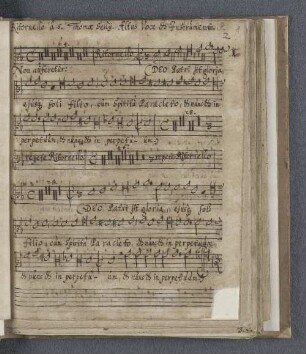 Ritornello. à 5. Thomæ Selij. Altus Voce et Instrumento.
2
Non auferetur: DEO Patri sit gloria,
ejusq; soli filio, cùm Spiritu Paracleto, et nunc et in
perpetuum, et nunc et in perpetuum,
repete Ritornello: repete Ritornello:
DEO Patri sit gloria, ejusq; soli
filio, cùm Spiritu Paracleto, et nunc et in perpetuum,
et nunc et in perpetuum, et nunc et in perpetuum,